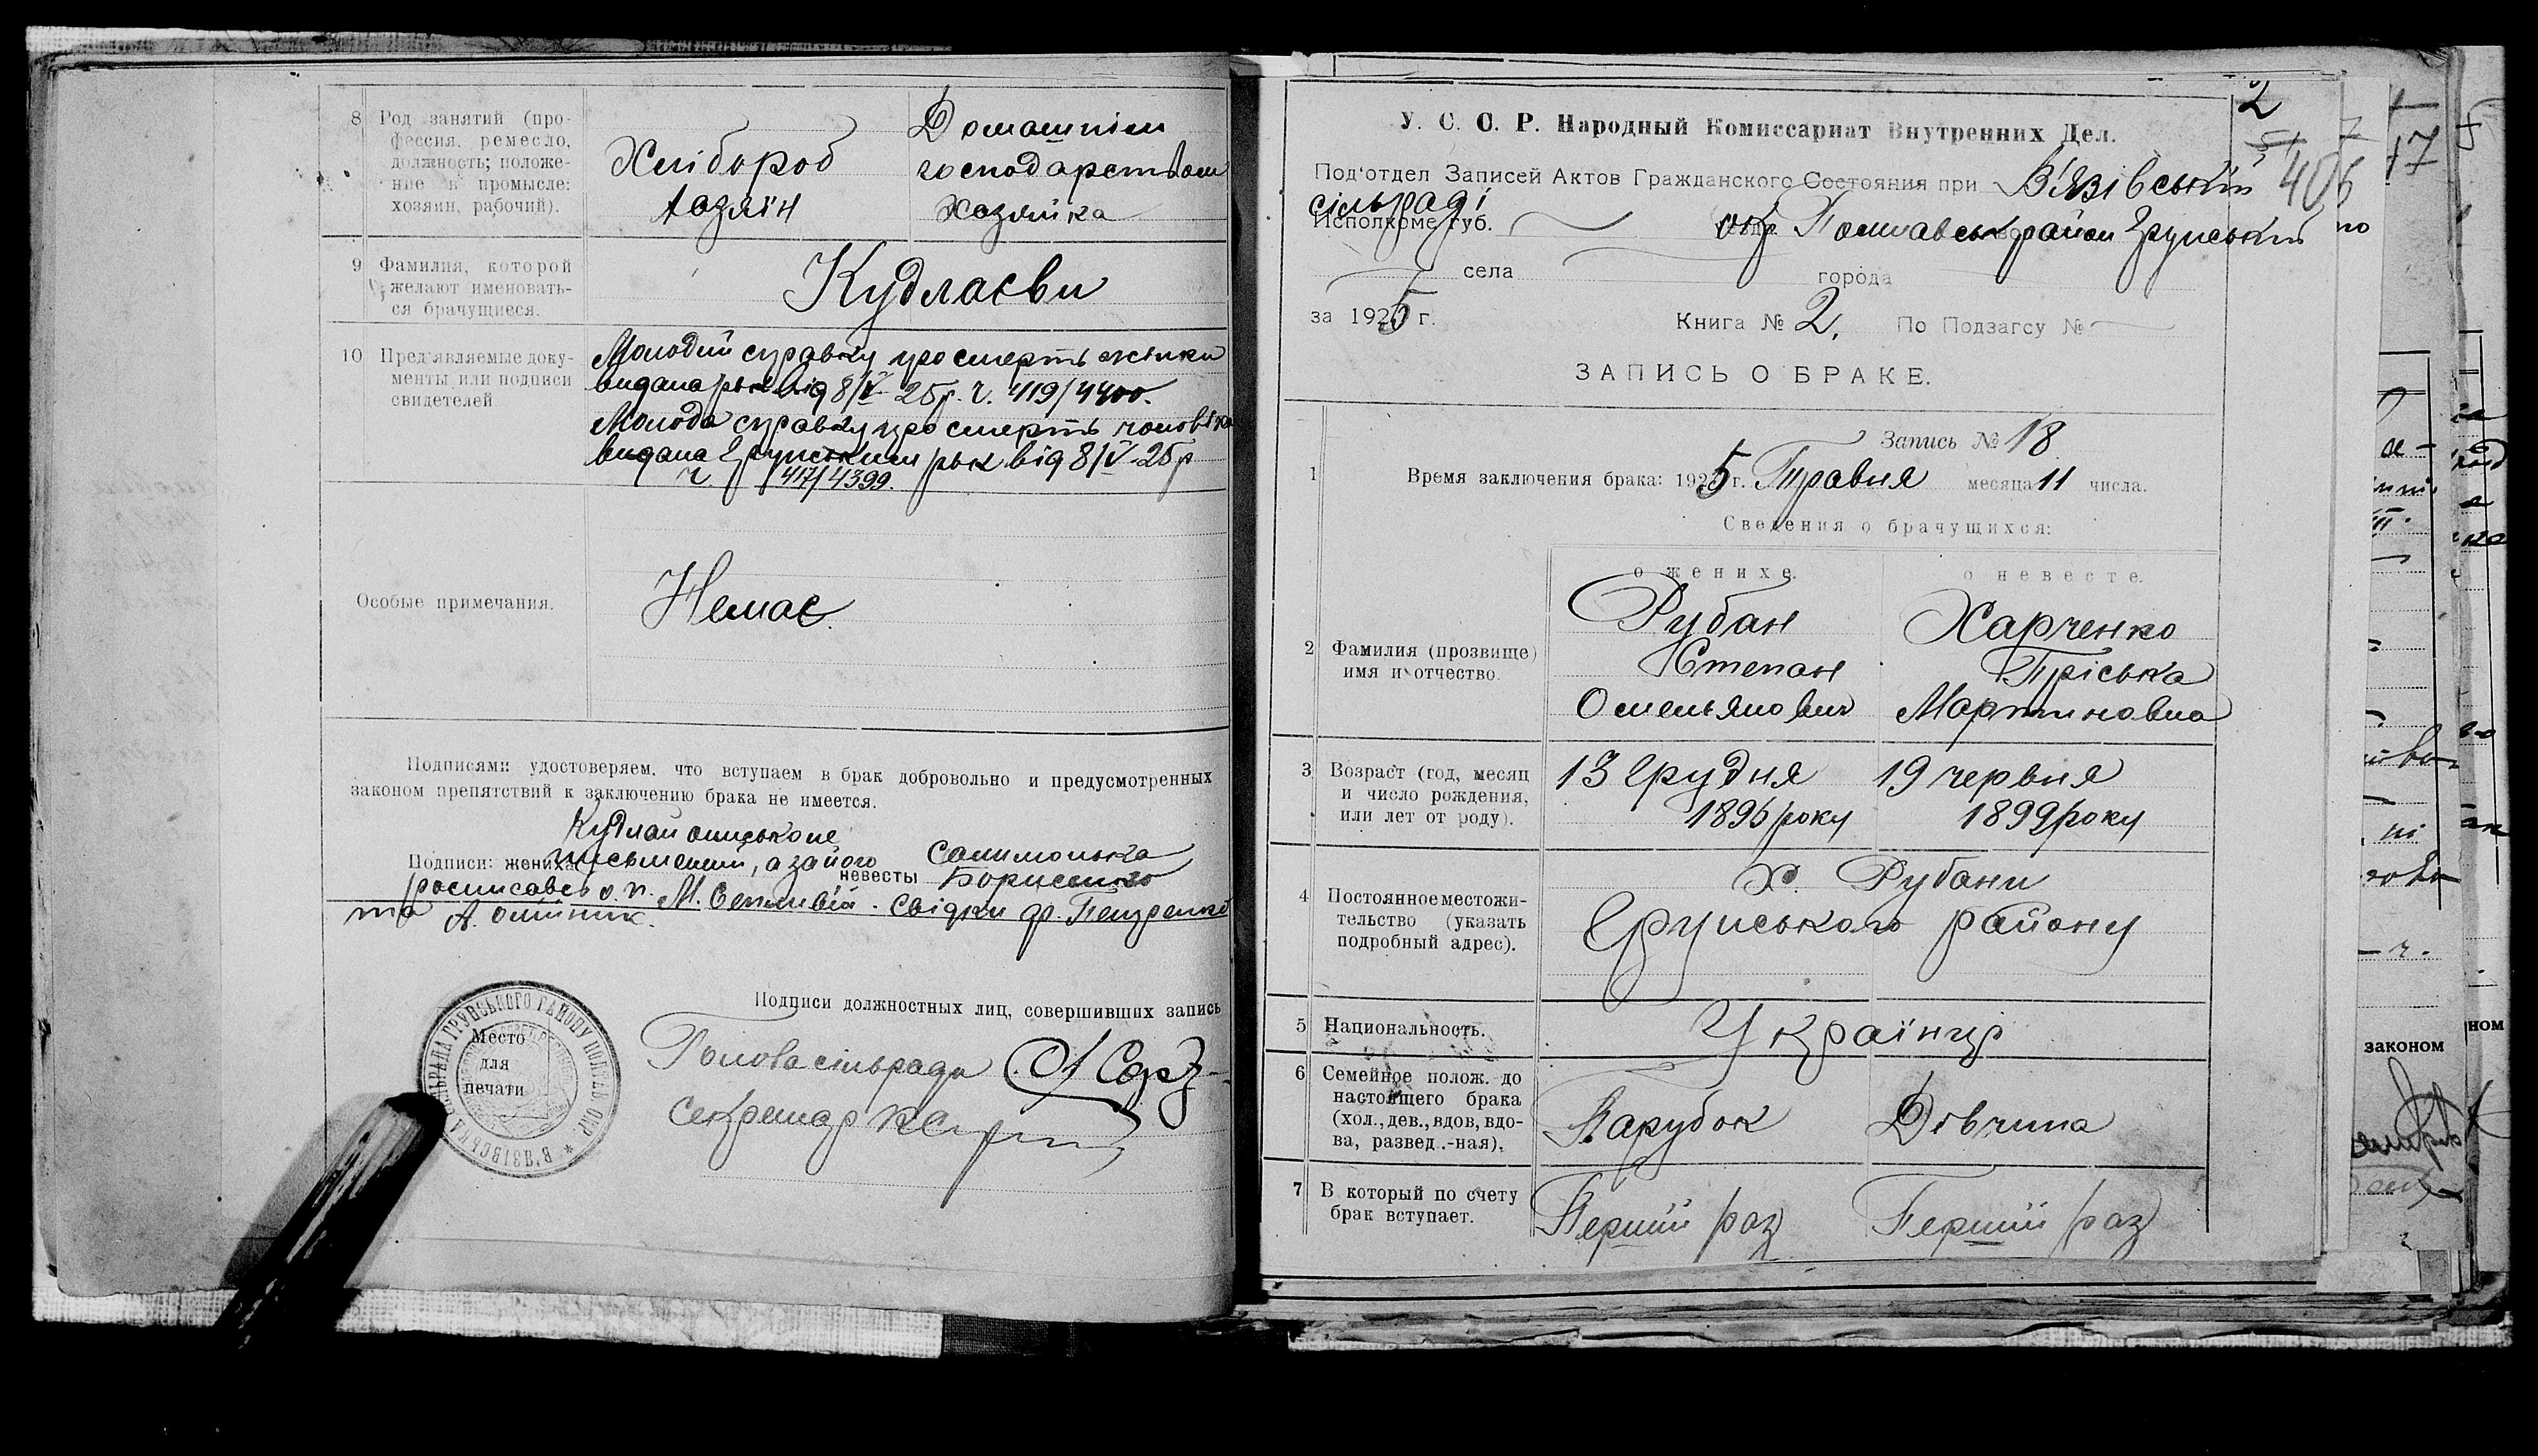 8 Род занятий (про-
фессия, ремесло,
должность; положе-
ние в промысле:
хозяин, рабочий).
Хлібороб
хазяїн
Домашнім
господарством
хазяйка
9 Фамилия, которой
желают именовать-
ся брачущиеся.
Кудлаєви
10 Пред'являемые доку-
менты или подписи
свидетелей
Молодий справку про смерть жінки
видана рвк від 8/V 25р. ч. 419/4400.
Молода справку про смерть чоловіка
видана Грунським рвк від 8/V-25р
ч 417/4399.
Особые примечания.
Немає.
Подписями удостоверяем, что вступаем в брак добровольно и предусмотренных
законом препятствий к заключению брака не имеется.
Кудлай
Подписи: жениха письменний, а за його
невесты Борисенко
росписавсь М. . Свідки Петренко
та А. Олійник.
Подписи должностных лиц, совершивших запись
Место
для
печати
В'ЯЗІВСЬКА СІЛЬРАДА ГРУНСЬКОГО РАЙОНУ ПОЛ-СЬ. ОКР. *
Голова сільради
Секретар
2
51
406
7
17
У. С. С. Р. Народный Комиссариат Внутренних Дел.
Под'отдел Записей Актов Гражданского Состояния при В'язівській
сільраді
Исполкоме губ. окр Полтавськ район Грунський
села города
за 1925 г. Книга № 2. По Подзагсу №
ЗАПИСЬ О БРАКЕ.
Запись № 18
1 Время заключения брака: 1925 г. Травня месяца 11 числа.
Сведения о брачущихся:
о женихе. о невесте.
2 Фамилия (прозвище)
имя и отчество.
Рубан
Степан
Омельянович
Харченко
Пріська
Мартиновна
3 Возраст (год, месяц
и число рождения,
или лет от роду).
13 Грудня
року
19 червня
1899 року
4 Постоянное местожи-
тельство (указать
подробный адрес).
Х. Рубани
Грунського району
5 Национальность.
Українці
6 Семейное полож. до
настоящего брака
(хол., дев., вдов, вдо-
ва, развед.-ная).
Парубок
Дівчина
7 В который по счету
брак вступает.
Перший раз
Перший раз
законом
ном